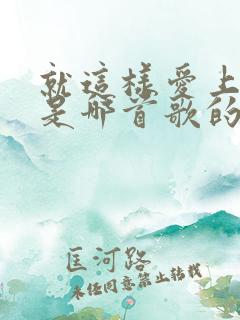 就這樣愛上
是哪首歌的
匡河路
未經同意禁止轉載